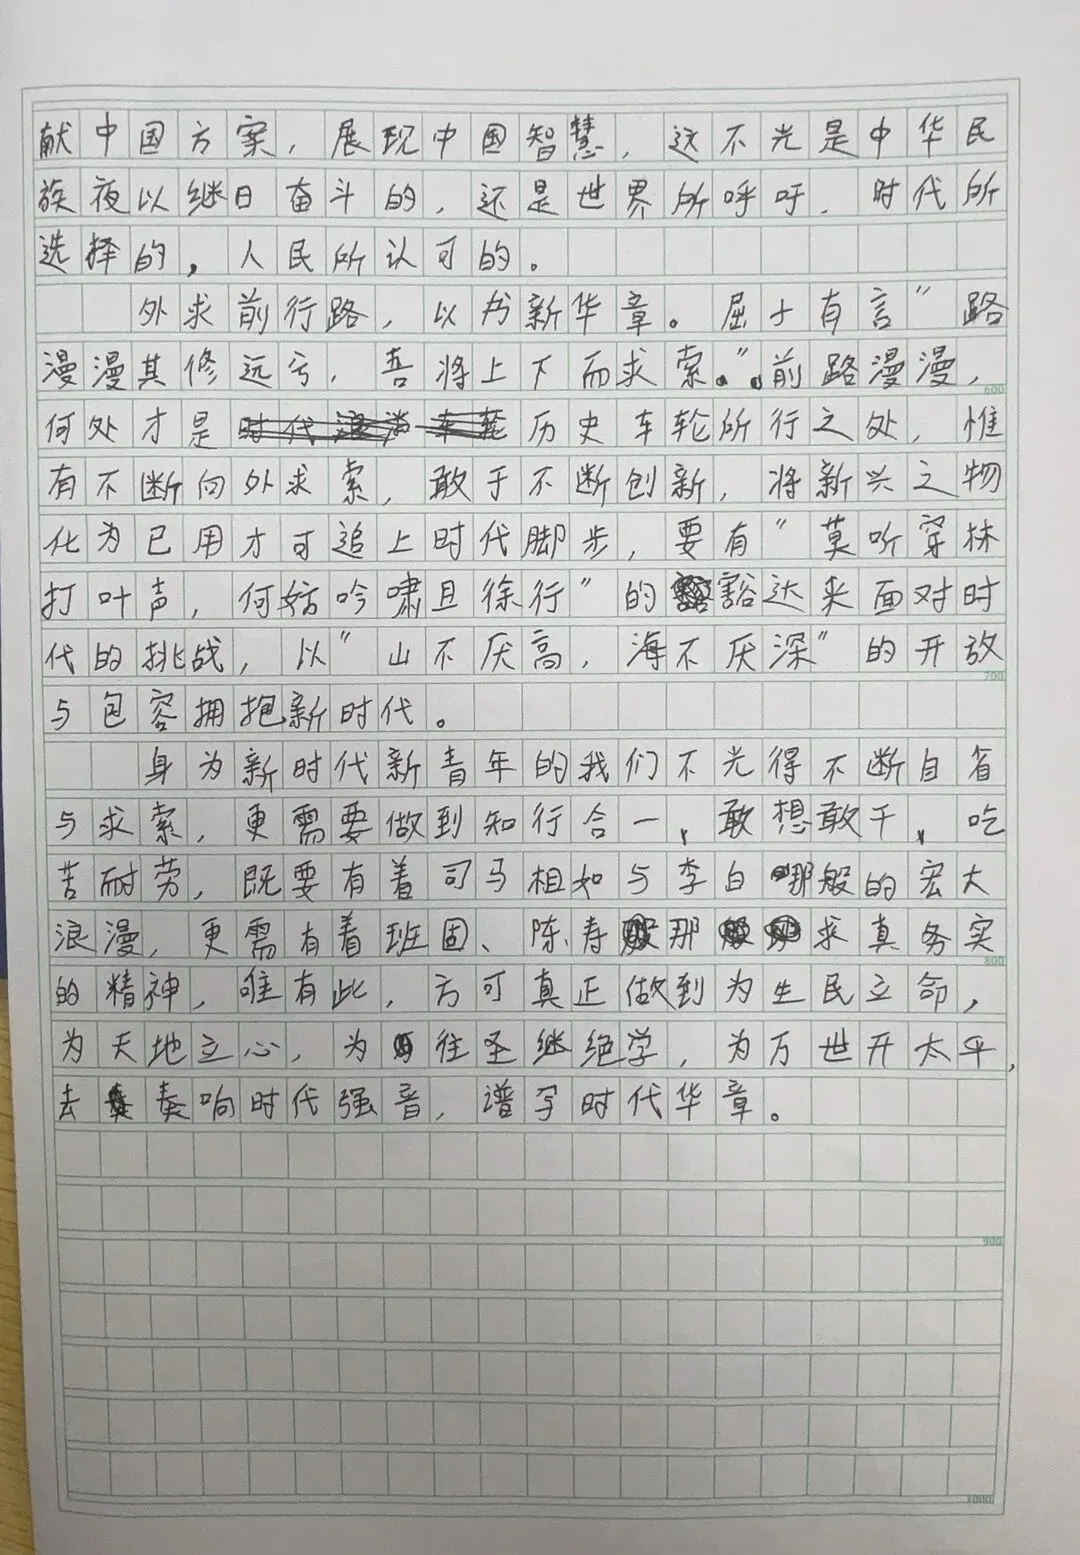 献中国方案，展现中国智慧，这不光是中华民
族夜以继日奋斗的，还是世界所呼吁，时代所
选择的，人民所认可的。
外求前行路，以书新华章。屈子有言"路
漫漫其修远兮，吾将上下而求索。"前路漫漫，
600
何处才是历史车轮所行之处，惟
有不断向外求索，敢于不断创新，将新兴之物
化为已用才可追上时代脚步，要有"莫听穿林
打叶声，何妨吟啸且徐行"的豁达来面对时
代的挑战，以"山不厌高，海不厌深"的开放
700
与包容拥抱新时代。
身为新时代新青年的我们不光得不断自省
与求索，更需要做到知行合一，敢想敢干，吃
苦耐劳，既要有着司马相如与李白那般的宏大
浪漫，更需有着班固、陈寿那求真务实
800
的精神，唯有此，方可真正做到为生民立命，
为天地立心，为往圣继绝学，为万世开太平，
去奏响时代强音，谱写时代华章。
900
1000